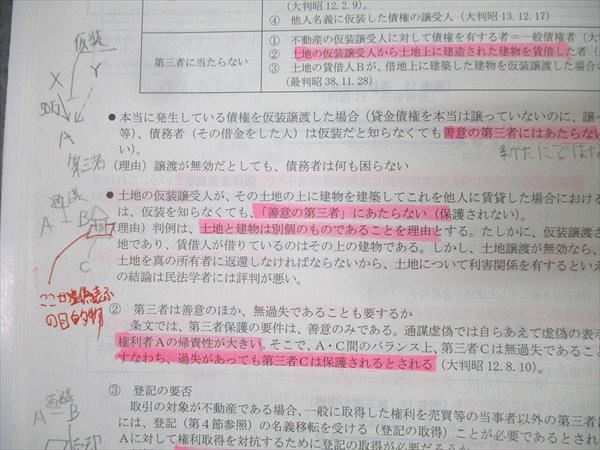 (大判昭 12.2.9)。
④ 他人名義に仮装した債権の譲受人（大判昭 13.12.17）
第三者に当たらない
① 不動産の仮装譲受人に対して債権を有する者＝一般債権者（大
② 土地の仮装譲受人から土地上に建造された建物を賃借した者（
③ 土地の賃借人Ｂが、借地上に建築した建物を仮装譲渡した場合の
（最判昭 38.11.28）
仮装
X
Y
A
第三者
● 本当に発生している債権を仮装譲渡した場合（貸金債権を本当は譲っていないのに、譲
等）、債務者（その借金をした人）は仮装だと知らなくても善意の第三者にはあたらない
い）。
新たにではな
（理由）譲渡が無効だとしても、債務者は何も困らない
通謀
A
B
C
ここが虚偽表示
の目的物
● 土地の仮装譲受人が、その土地の上に建物を建築してこれを他人に賃貸した場合における
は、仮装を知らなくても、「善意の第三者」にあたらない（保護されない）。
理由）判例は、土地と建物は別個のものであることを理由とする。たしかに、仮装譲渡さ
地であり、賃借人が借りているのはその上の建物である。しかし、土地譲渡が無効なら、
土地を真の所有者に返還しなければならないから、土地について利害関係を有するといえ
の結論は民法学者には評判が悪い。
② 第三者は善意のほか、無過失であることも要するか
条文では、第三者保護の要件は、善意のみである。通謀虚偽では自らあえて虚偽の表示
権利者Ａの帰責性が大きい。そこで、Ａ・Ｃ間のバランス上、第三者Ｃは無過失であること
すなわち、過失があっても第三者Ｃは保護されるとされる（大判昭 12.8.10）。
通謀
A
B
③ 登記の要否
取引の対象が不動産である場合、一般に取得した権利を売買等の当事者以外の第三者に
には、登記（第４節参照）の名義移転を受ける（登記の取得）ことが必要であるとされ
Ａに対して権利取得を対抗するために登記の取得が必要だろうか